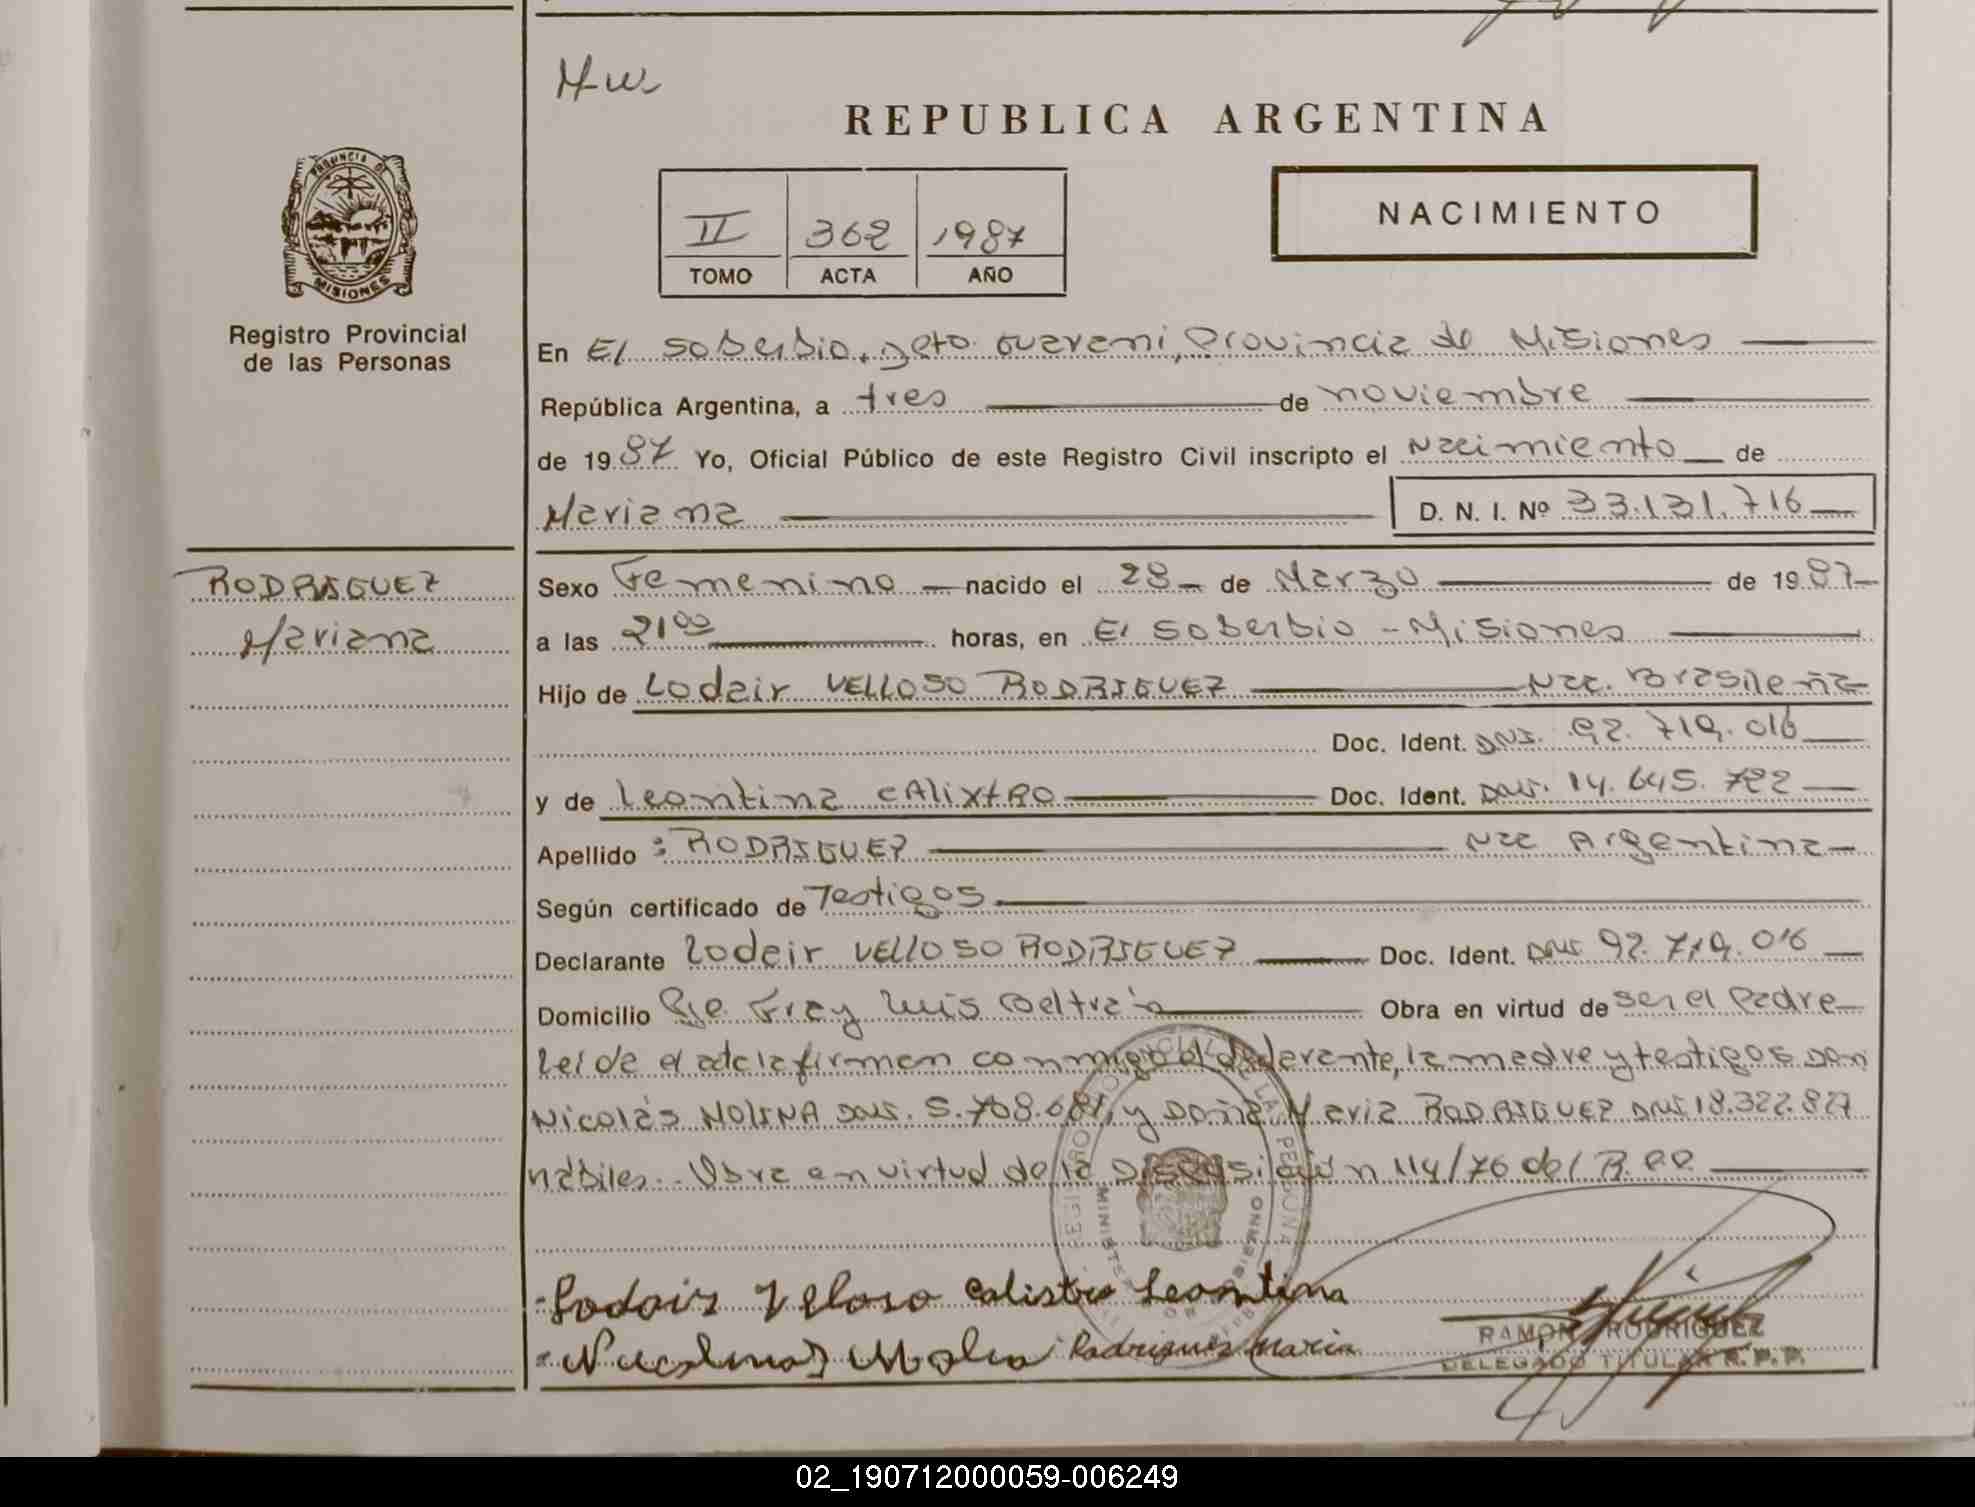 REPUBLICA ARGENTINA
NACIMIENTO
II 362 1987
TOMO ACTA AÑO
PROVINCIA DE
MISIONES
Registro Provincial
de las Personas
En El Soberbio, Dpto Guarani, Provincia de Misiones
República Argentina, a tres de noviembre
de 1987 Yo, Oficial Público de este Registro Civil inscripto el Nacimiento de
Mariana D. N. I. Nº 33.131.716
RODRIGUEZ
Mariana
Sexo Femenino nacido el 28 de Marzo de 1987
a las 21 00 horas, en El Soberbio - Misiones
Hijo de Lodair VELLOSO RODRIGUEZ Nac. Brasileña
Doc. Ident. DNI. 92.719.016
y de Leontina CALIXTRO Doc. Ident. DNI. 14.645.722
Apellido : RODRIGUEZ Nac Argentina
Según certificado de Testigos
Declarante Lodair VELLOSO RODRIGUEZ Doc. Ident. DNI 92.719.016
Domicilio Pje Fray Luis Beltrán Obra en virtud de ser el Padre
Leída el acta la firman conmigo el declarante, la madre y testigos Don
Nicolás MOLINA DNI. 5.708.681, y Doña Maria RODRIGUEZ DNI 18.322.827
hábiles.- Obra en virtud de la Disposición 114/76 del R.P.P.
Lodair Veloso Calistro Leontina
Rodrigues Maria
RAMON RODRIGUEZ
DELEGADO TITULAR R.P.P.
02_190712000059-006249